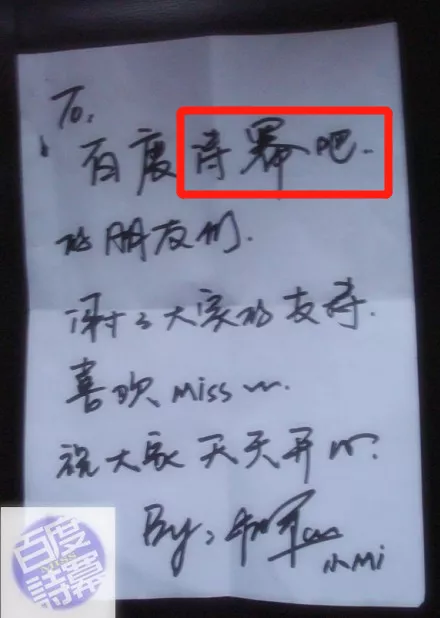 To,
百度诗幂吧.
的朋友们.
谢谢大家的支持.
喜欢、miss
祝大家天天开心.
By: 小Mi
百度
MISS